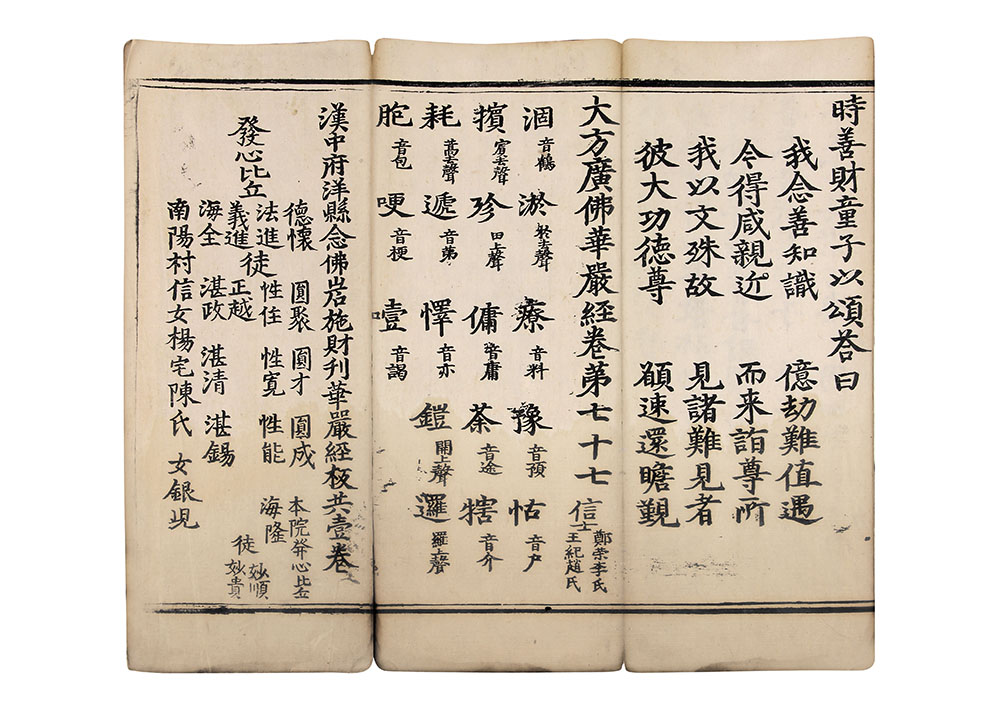 時善財童子以頌荅曰
我念善知識 億劫難值遇
令得咸親近 而来詣尊所
我以文殊故 見諸難見者
彼大功德尊 願速還瞻覲
大方廣佛華嚴経卷第七十七
信士 鄭荣李氏 王紀趙氏
涸 音鶴 淤 於去聲 療 音料 豫 音預 怙 音户
擯 賓去聲 殄 田上聲 傭 音庸 荼 音途 犗 音介
耗 蒿去聲 遞 音弟 懌 音亦 鎧 開上聲 邏 羅上聲
胞 音包 哽 音梗 噎 音謁
漢中府洋縣念佛岩施財刊華嚴経板共壹卷
發心比丘
德懷 圓聚 圓才 圓成 本院發心比丘
法進 徒 性住 性寛 性能 海隆
義進 正越 徒 妙順 妙貴
海全 湛政 湛清 湛錫
南陽村信女楊宅陳氏 女銀